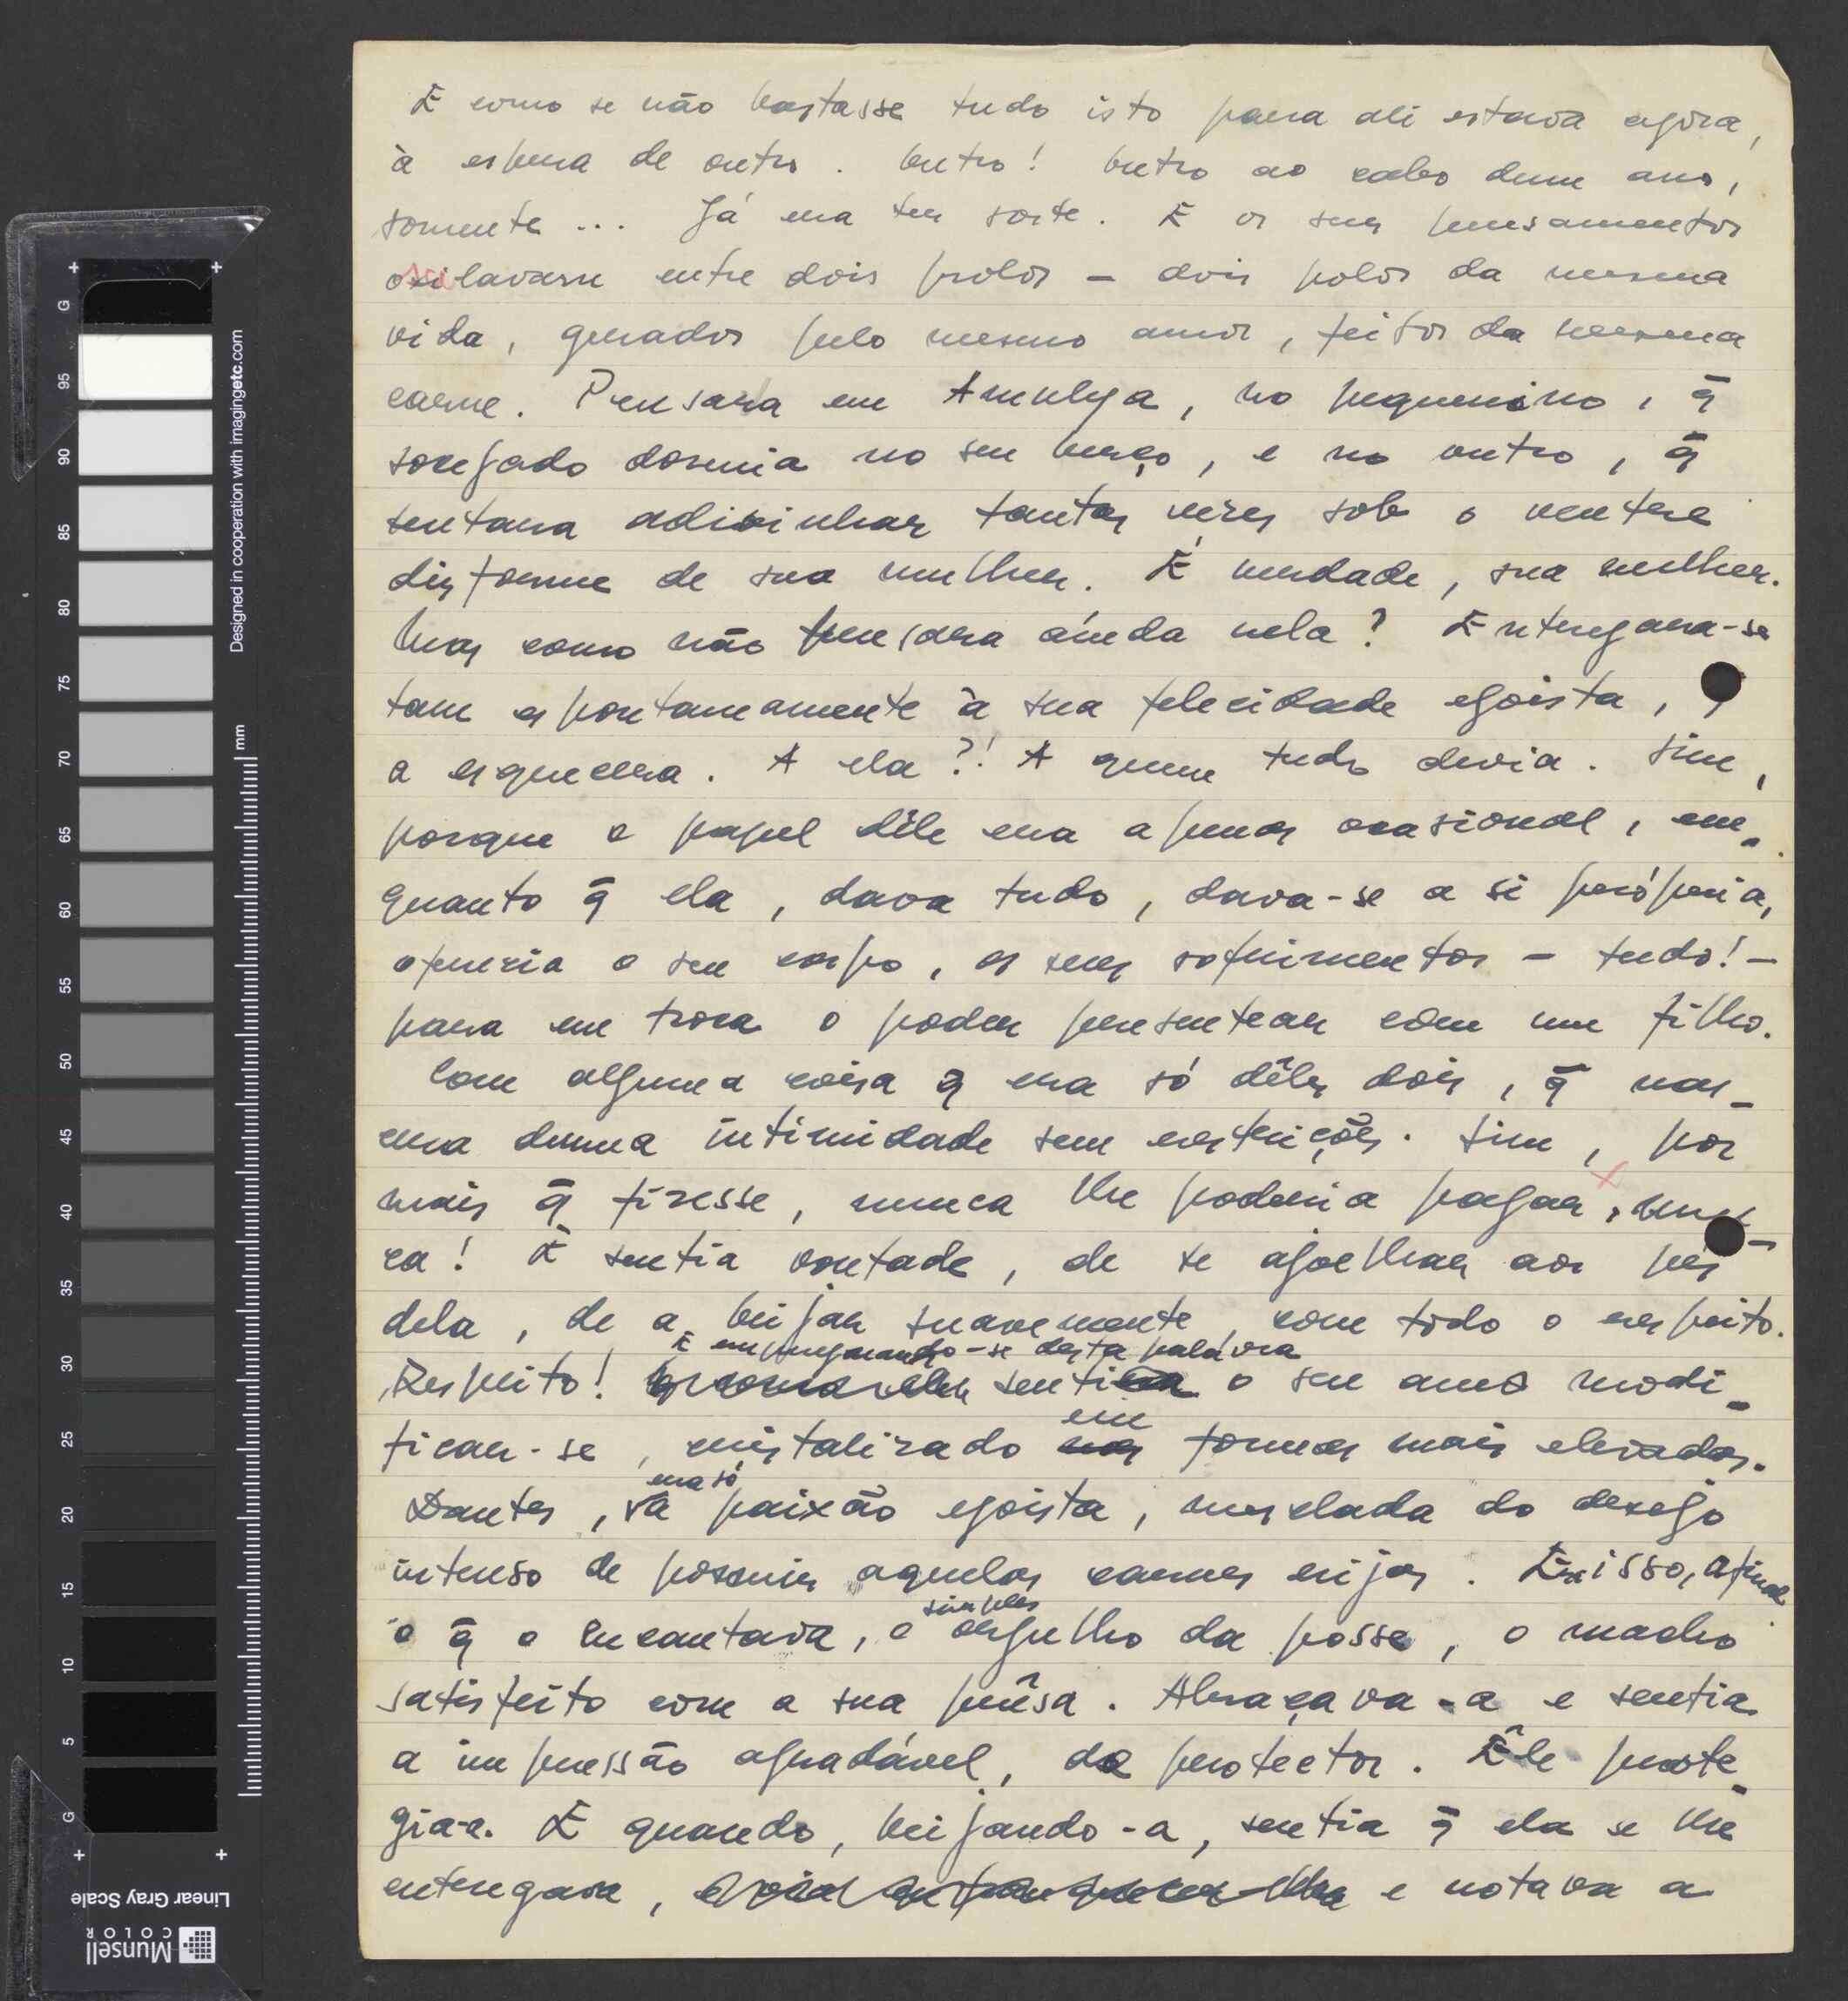 E como se não bastasse tudo isto para ali estava agora,
à espera de outro. Outro! Outro ao cabo dum ano,
somente ... Já era ter sorte. E os seus pensamentos
oscilavam entre dois polos – dois polos da mesma
vida, gerados pelo mesmo amor, feitos da mesma
carne. Pensara em no pequenino, q̄
sossegado dormia no seu berço, e no outro, q̄
tentara adivinhar tantas vezes sob o ventre
disforme de sua mulher. É verdade, sua mulher.
Mas como não pensara ainda nela? Entregara-se
tam espontaneamente à sua felecidade egoista, q̄
a esquecera. A ela?! A quem tudo devia. Sim,
porque o papel dêle era apenas ocasional, em-
quanto q̄ ela, dava tudo, dava-se a si própria,
oferecia o seu corpo, os seus sofrimentos – tudo! –
para em troca o poder presentear com um filho.
Com alguma coisa q̄ era só dêles dois, q̄ nas-
cera duma intimidade sem restrições. Sim, por
mais q̄ fizesse, nunca lhe poderia pagar, nun-
ca! E sentia vontade, de se ajoelhar aos pés
dela, de a beijar suavemente, com todo o respeito.
E empregnando-se desta palávra
Respeito! senti o seu amor modi-
em
ficar-se, cristalizado nas formas mais elevadas.
era só
Dantes, a paixão egoista, mesclada do desejo
intenso de possuir aquelas carnes rijas. Era isso, afinal
simples
o q̄ o encantava, o orgulho da posse, o macho
satisfeito com a sua prêsa. Abraçava-a e sentia
a impressão agradável, de protector. Êle prote-
gia-a. E quando, beijando-a, sentia q̄ ela se lhe
entregava, e notava a
Designed in cooperation with imagingetc.com
mm
G 95 90 85 80 75 70 65 60 55 50 45 40 35 30 25 20 15 10 5 G
Linear Gray Scale
Munsell
COLOR